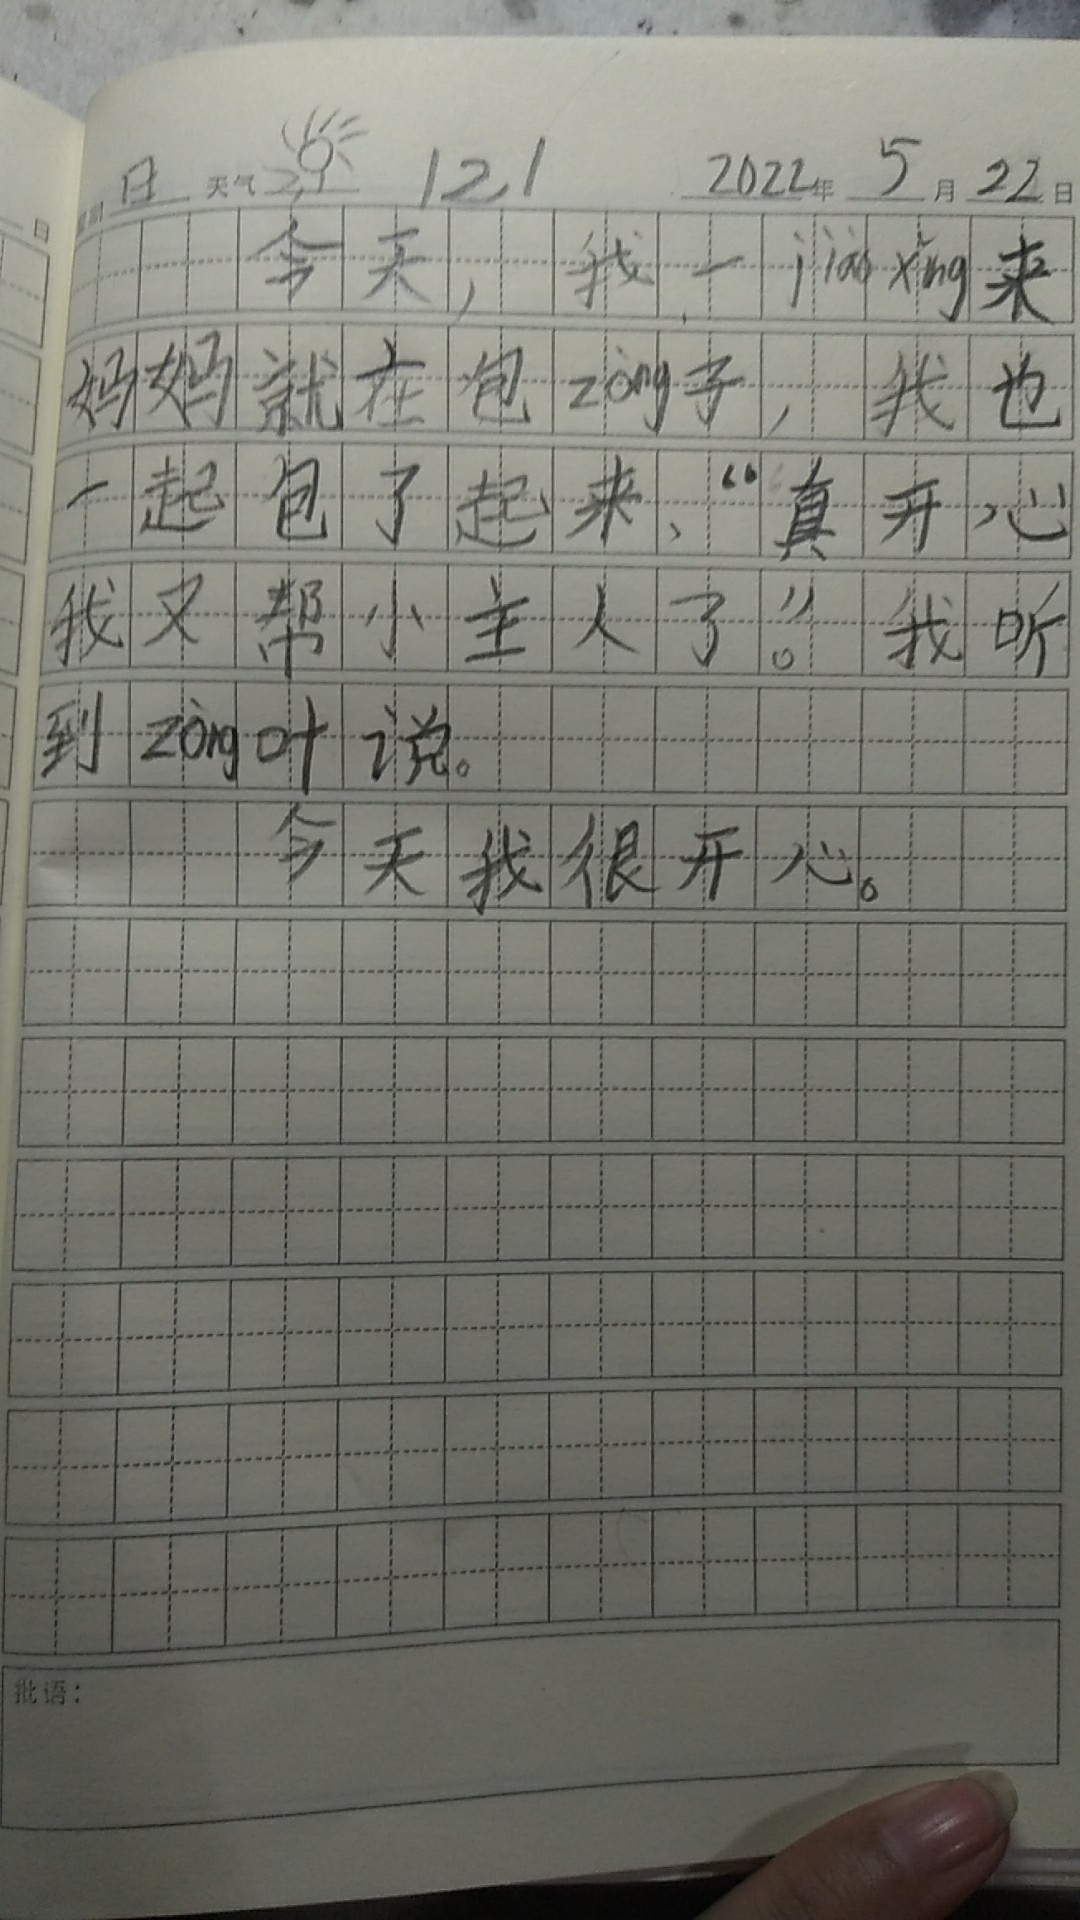 日 天气 121 2022年 5月 22日
今天,我一jiào xǐng来
妈妈就在包zòng子,我也
一起包了起来、“真开心
我又帮小主人了。”我听
到zòng叶说。
今天我很开心。
批语: